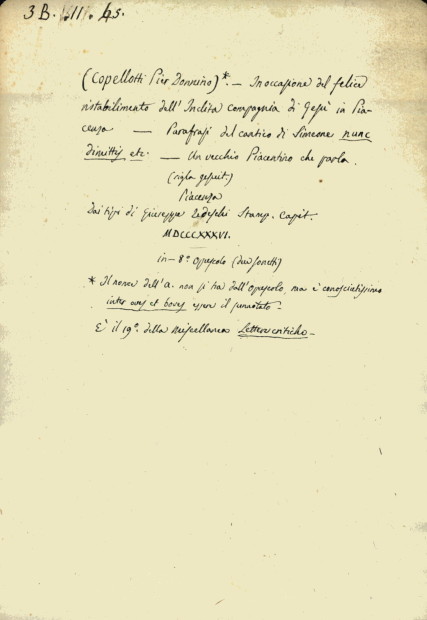 3 B. III. 45.
(Copellotti Pier Donnino)*. — In occasione del felice
ristabilimento dell'Inclita Compagnia di Gesù in Pia-
cenza — Parafrasi del cantico di Simeone nunc
dimittis etc. — Un vecchio Piacentino che parla.
(sigla gesuit.)
Piacenza
Dai tipi di Giuseppe Tedeschi Stamp. Capit.
MDCCCXXXVI.
in-8° opuscolo (due sonetti)
* Il nome dell'a. non si ha dall'opuscolo, ma è conosciutissimo
inter oves et boves essere il sunnotato.
È il 19° della miscellanea Lettere critiche.